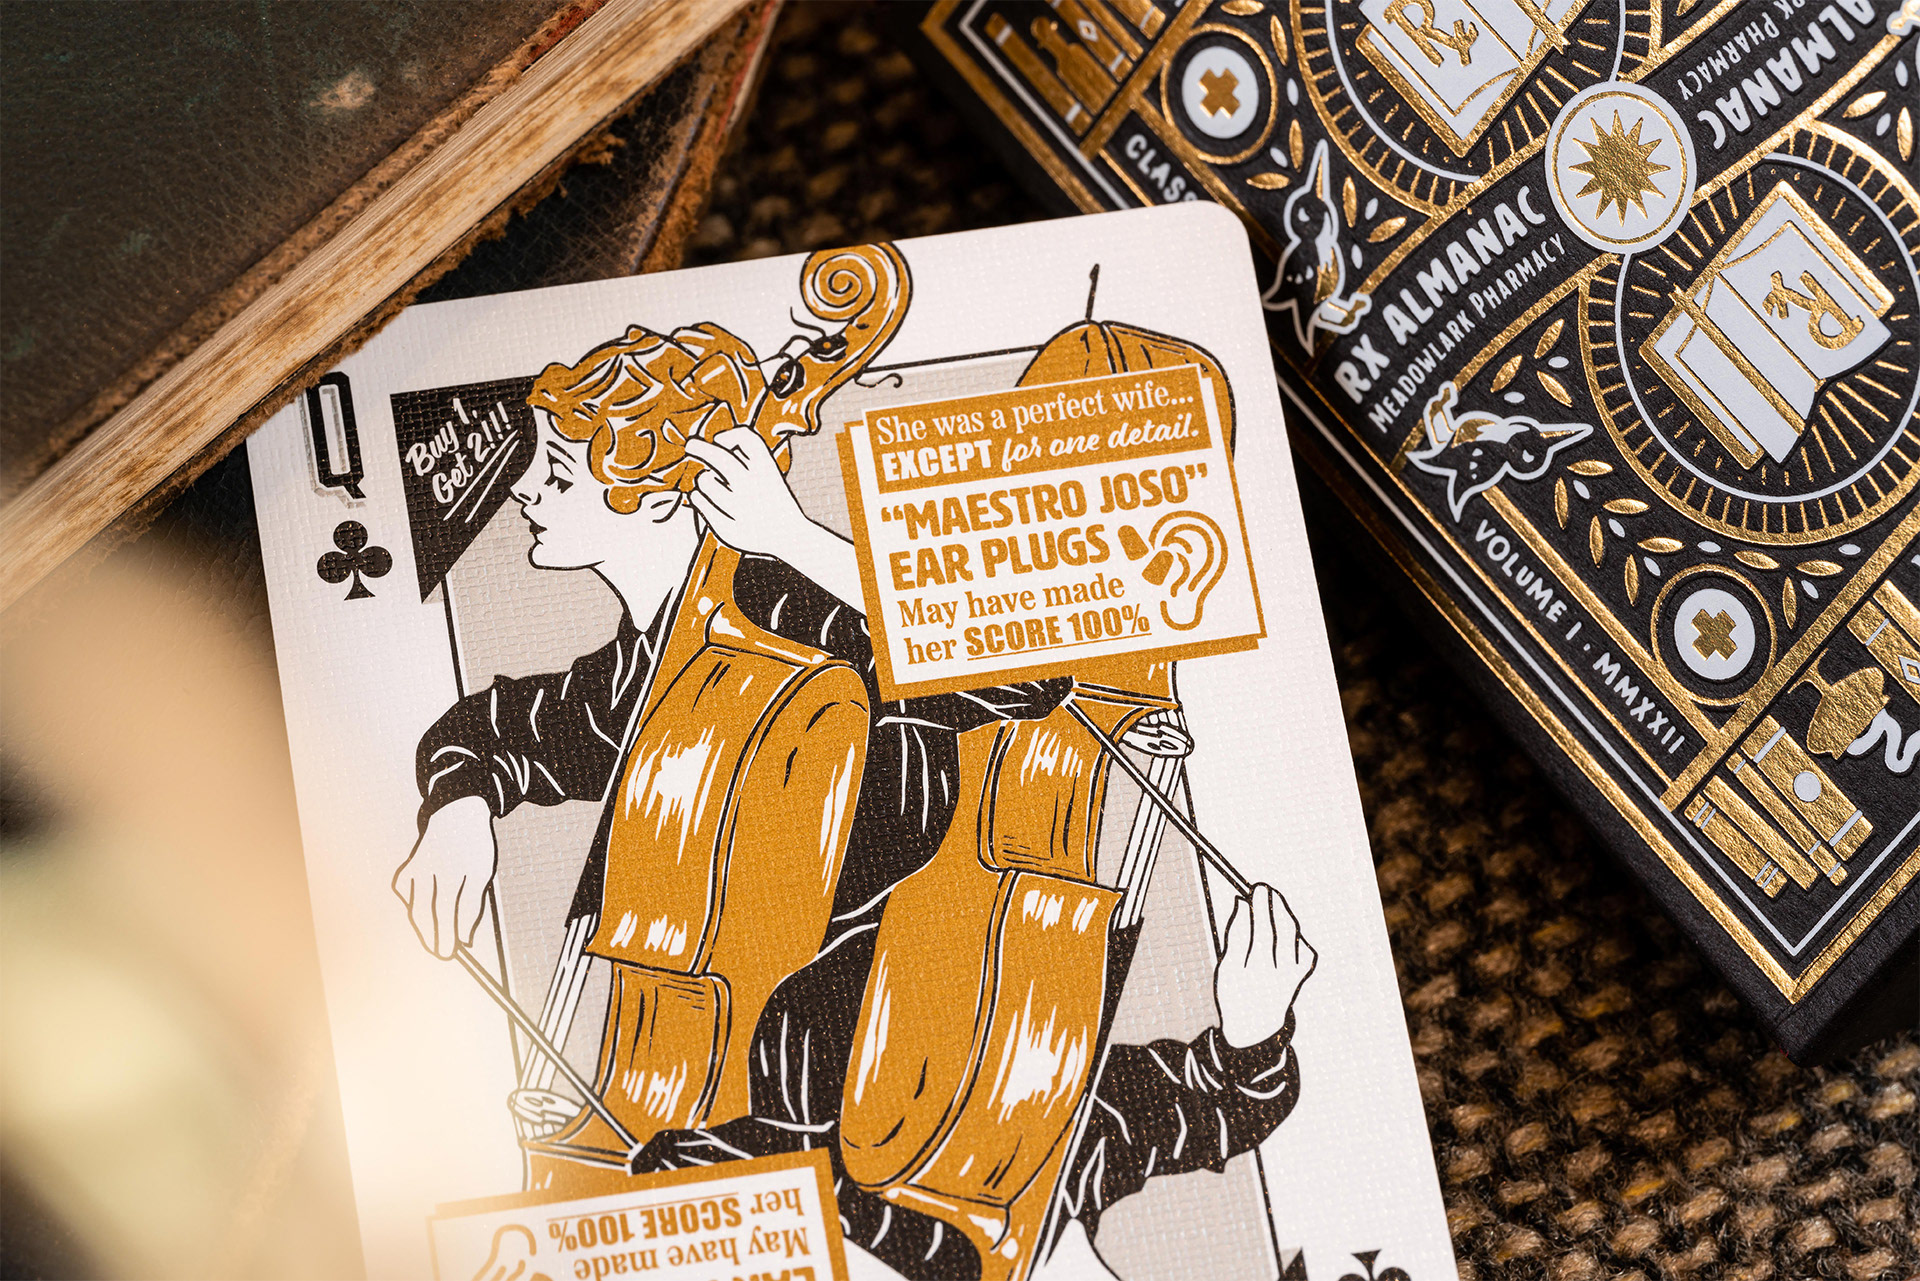 Q
Buy 1,
Get 2!!!
She was a perfect wife...
EXCEPT for one detail.
"MAESTRO JOSO"
EAR PLUGS
May have made
her SCORE 100%
her SCORE 100%
May have made
CLASS
Rx
ALMANAC
PHARMACY
RX ALMANAC
MEADOWLARK PHARMACY
Rx
VOLUME I · MMXXII